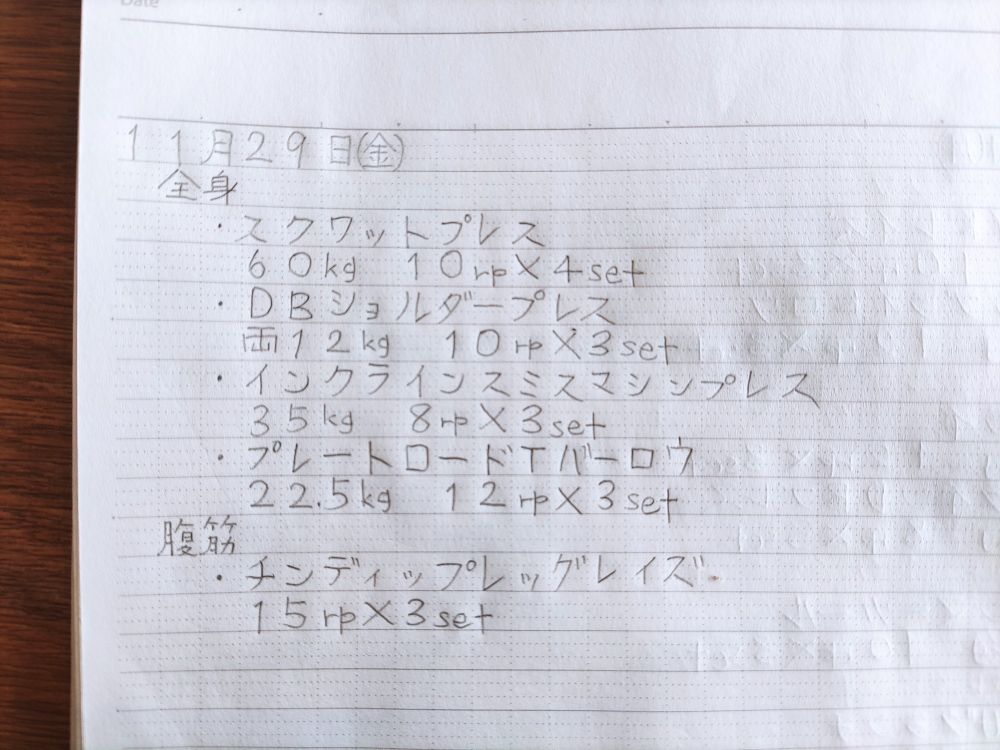 Date
11月29日(金)
全身
・スクワットプレス
60kg 10rp×4set
・DBショルダープレス
両12kg 10rp×3set
・インクラインスミスマシンプレス
35kg 8rp×3set
・プレートロードTバーロウ
22.5kg 12rp×3set
腹筋
・チンディップレッグレイズ
15rp×3set